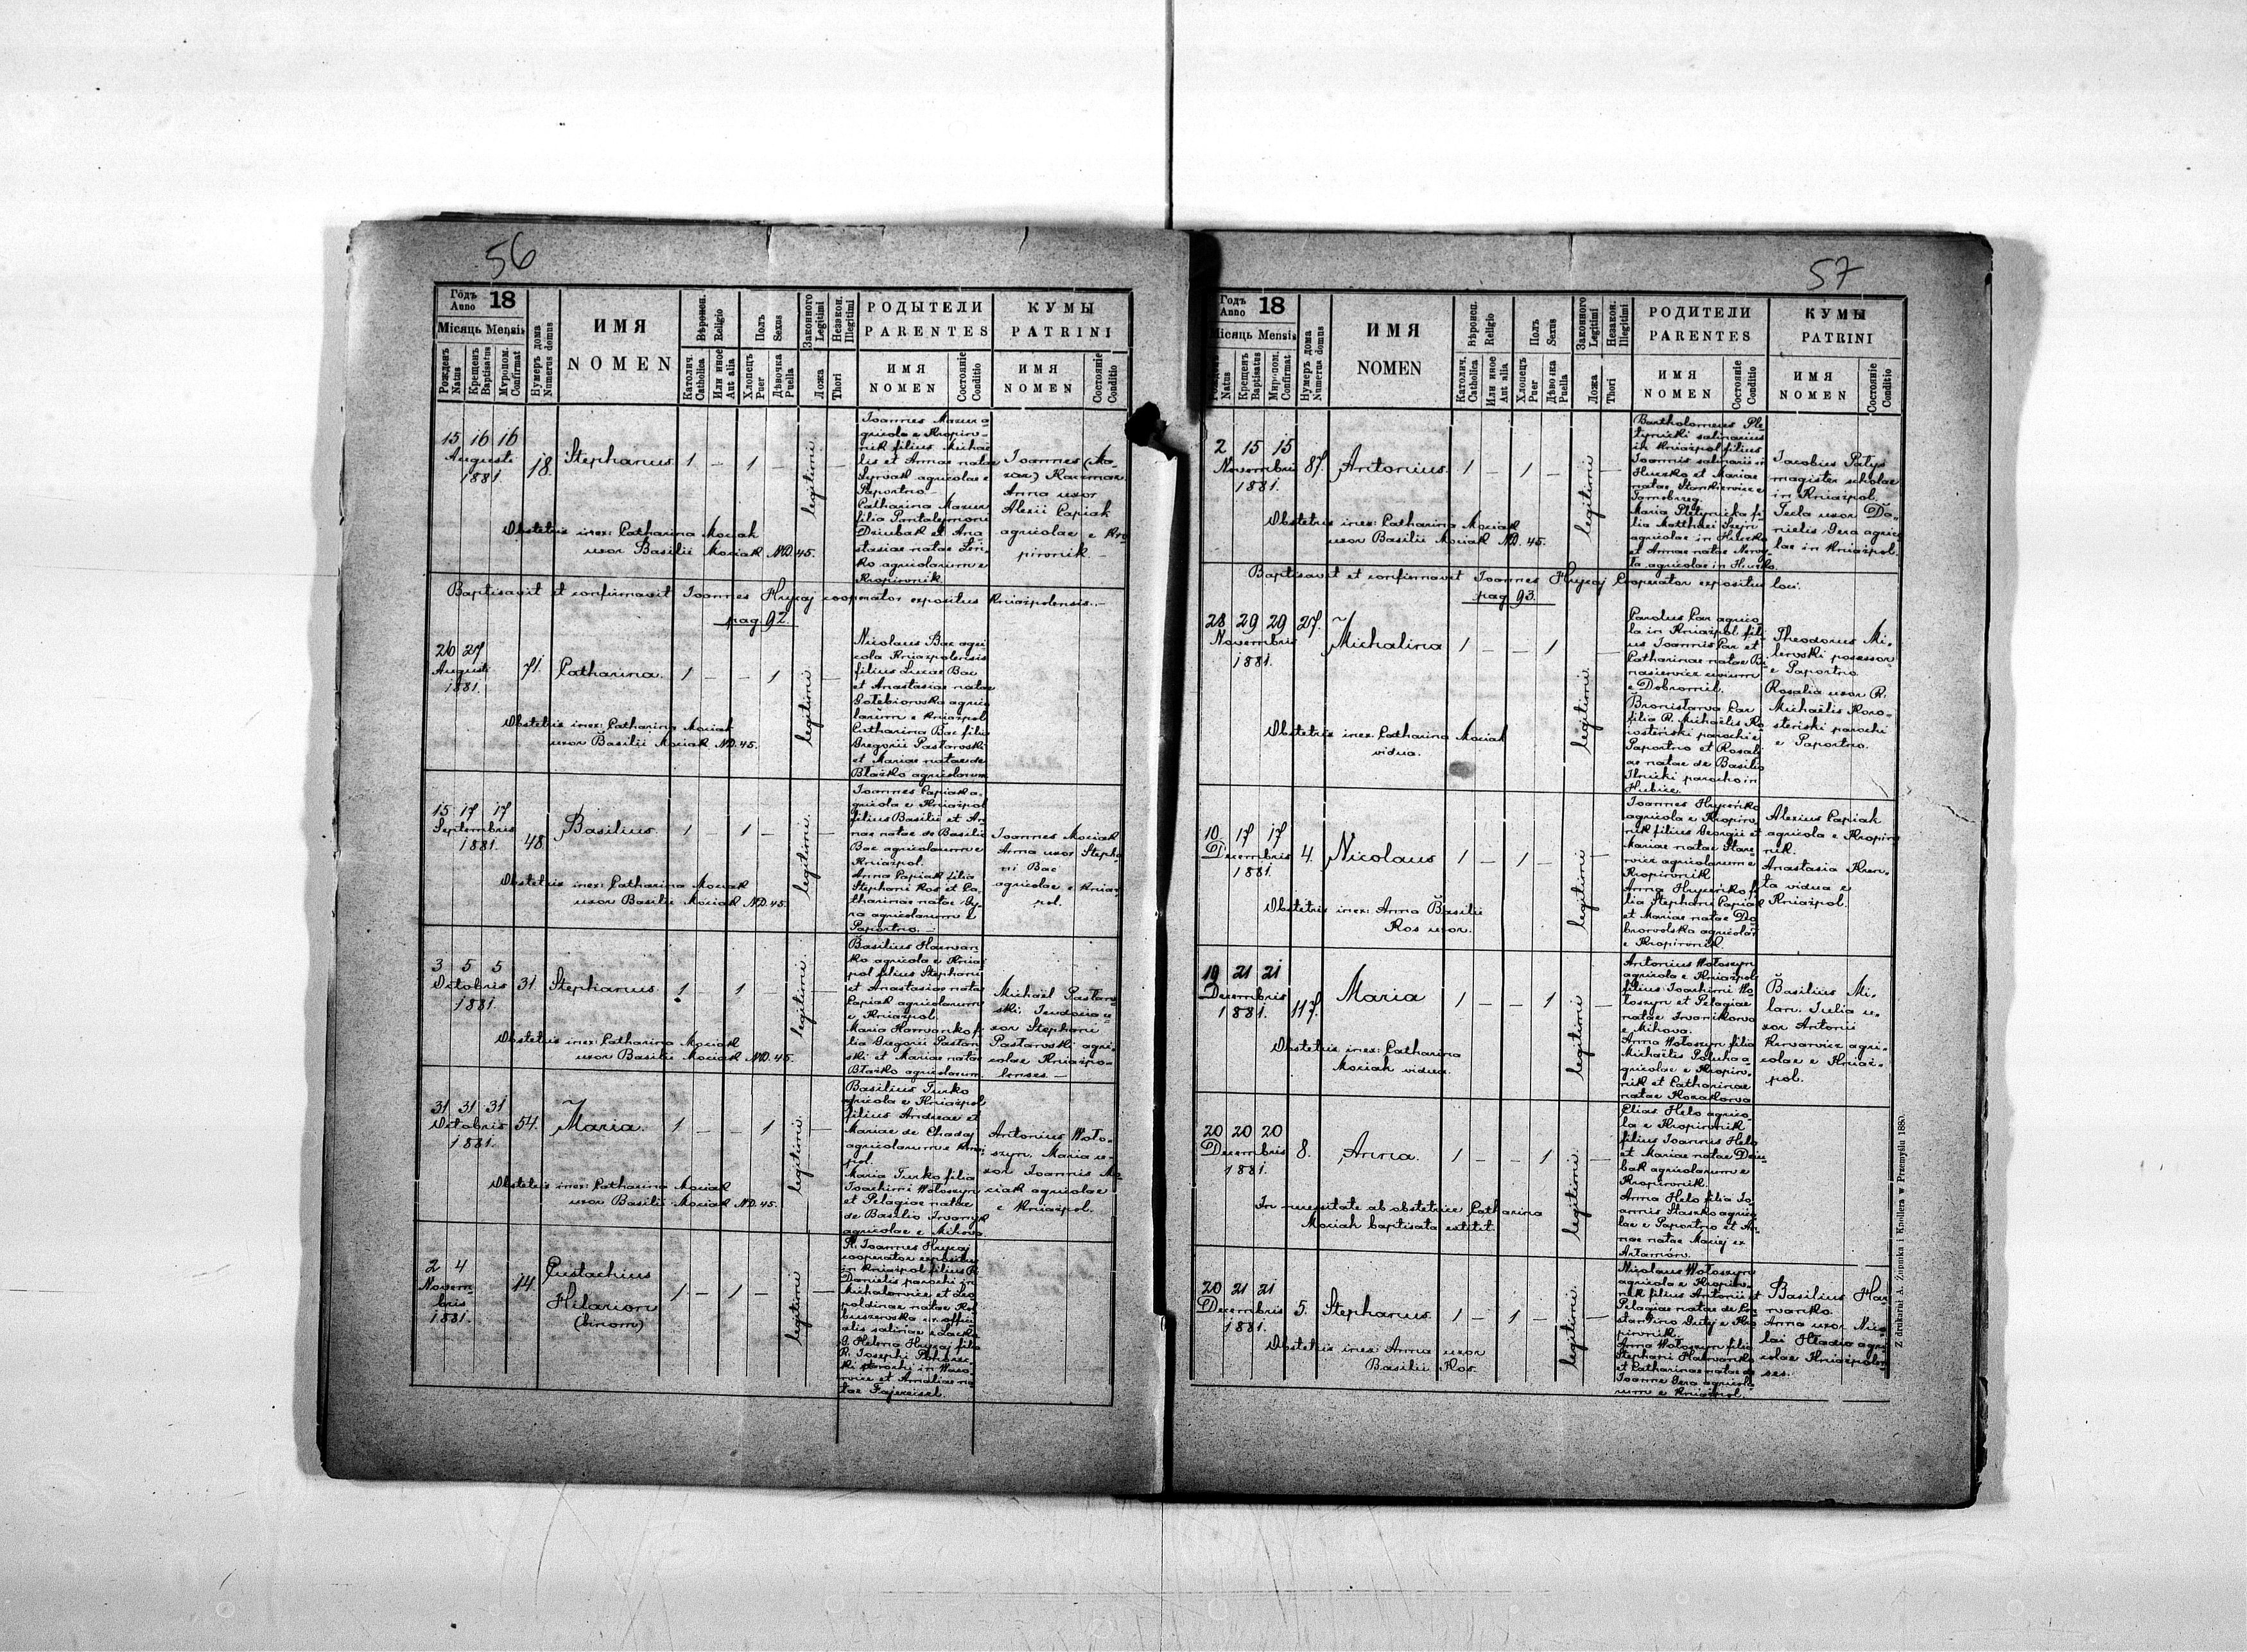 56
Годъ
Anno
18
Місяць Mensis
Рожденъ
Natus
Крещенъ
Baptisatus
Мѵропом.
Confirmat
Нумеръ дома
Numerus domus
ИМЯ
NOMEN
Вѣроисп.
Religio
Католич.
Catholica
Или иное
Aut alia
Полъ
Sexus
Хлопецъ
Puer
Дѣвочка
Puella
Законного
Legitimi
Незакон.
Illegitimi
Ложа
Thori
РОДЫТЕЛИ
PARENTES
ИМЯ
NOMEN
Состояніе
Conditio
КУМЫ
PATRINI
ИМЯ
NOMEN
Состояніе
Conditio
15 16 16
Augusti
1881
18.
Stephanus
1 – 1 –
legitimi
Joannes Mazur a-
gricola e Kropiw-
nik filius Michae-
lis et Annae natae
agricolae e
Paportno.
Catharina Mazur
filia Pantalemoni
Dziubak et Ana
stasiae natae
ko agricolarum e
Kropiwnik
Joannes
Kaczmar
Anna uxor
Alexii Capiak
agricolae e Kro
piwnik.
Obstetrix inex: Catharina Mociak
uxor Basilii Mociak ND. 45.
Baptisavit et confirmavit Joannes Hrycaj cooperator expositus Kniażpolensis.
pag 92.
26 27
Augusti
1881.
71.
Catharina.
1 – – 1
legitimi
Nicolaus Bac agri
cola Kniażpolensis
filius Lucae Bac
et Anastasiae natae
Gołebiowska agrico
larum e Kniażpol
Catharina Bac filia
Gregorii Pasławski
et Mariae natae de
Błażko agricolarum
Obstetrix inex: Catharina Mociak
uxor Basilii Mociak ND. 45.
15 17 17
Septembris
1881.
48
Basilius
1 – 1 –
legitimi
Joannes Capiak a-
gricola e Kniażpol
filius Basilii et An-
nae natae de Basilio
Bac agricolarum e
Kniażpol.
Anna Capiak filia
Stephani Ros et Ca-
tharinae natae
agricolarum e
Paportno.
Joannes Mociak
Anna uxor Stepha
ni Bac
agricolae e Kniaż
pol.
Obstetrix inex: Catharina Mociak
uxor Basilii Mociak ND. 45.
3 5 5
Octobris
1881.
31
Stephanus
1 – 1 –
legitimi
Basilius Harwan-
ko agricola e Kniaż
pol filius Stephani
et Anastasiae natae
Capiak agricolarum
e Kniażpol
Maria Harwanko fi
lia Gregorii Pasław
ski et Mariae natae
Błażko agricolarum.
Michaël Pasław
ski. Teodozia u-
xor Stephani
Pasławski agri-
colae Kniażpo-
lenses.
Obstetrix inex: Catharina Mociak
uxor Basilii Mociak ND. 45.
31 31 31
Octobris
1881.
54.
Maria.
1 – – 1
legitimi
Basilius Turko
agricola e Kniażpol
filius Andreae et
Mariae de Chadaj
agricolarum e Kniaż
pol
Maria Turko filia
Joachimi Wołoszyn
et Pelagiae natae
de Basilio Iwanyk
agricolae e Mihowa
Antonius Woło-
szyn. Maria u-
xor Joannis Mo
ciak agricolae
e Kniażpol.
Obstetrix inex: Catharina Mociak
uxor Basilii Mociak ND. 45.
2 4
Novem-
bris
1881.
14.
Eustachius
Hilarion
(binom)
1 – 1 –
legitimi
R. Joannes Hrycaj
cooperator expositus
in Kniażpol filius R.
Danielis parochi in
Michalowice et Leo
poldinae natae
offici
alis salinae e Lacko
G. Helena Hrycaj filia
R. Josephi
ki parochi in
et Amaliae na
tae Fajereisel.
57
Годъ
Anno
18
Місяць Mensis
Рожденъ
Natus
Крещенъ
Baptisatus
Миропом.
Confirmat
Нумеръ дома
Numerus domus
ИМЯ
NOMEN
Вѣроисп.
Religio
Католич.
Catholica
Или иное
Aut alia
Полъ
Sexus
Хлопецъ
Puer
Дѣвочка
Puella
Законного
Legitimi
Незакон.
Illegitimi
Ложа
Thori
РОДИТЕЛИ
PARENTES
ИМЯ
NOMEN
Состояніе
Conditio
КУМЫ
PATRINI
ИМЯ
NOMEN
Состояніе
Conditio
2 15 15
Novembris
1881.
87.
Antonius.
1 – 1 –
legitimi
Bartholomeus Ple-
tynicki salinarius
in Kniażpol filius
Joannis salinarii in
Huczko et Mariae
natae Stankiewicz e
Tarnobrzeg.
Maria Pletynicka fi-
lia Matthaei Szejn
agricolae in Huczko
et Annae natae
ta agricolae in Huczko.
Jacobus Patys
magister scholae
in Kniażpol.
Tecla uxor Da-
nielis Gera agrico
lae in Kniażpol.
Obstetrix inex: Catharina Mociak
uxor Basilii Mociak ND. 45.
Baptisavit et confirmavit Joannes Hrycaj Cooperator expositus loci.
pag 93.
28 29 29
Novembris
1881.
27.
Michalina
1 – – 1
legitimi
Carolus Car agrico
la in Kniażpol fili-
us Joannis Car et
Catharinae natae Ba
nasiewicz civium
e Dobromil.
Bronisława Car
filia R. Michaëlis Ko
rosteński parochi e
Paportno et Rosali
ae natae de Basilio
Ilnicki parocho in
Hubice.
Theodorus Mi-
lewski possessor
e Paportno
Rosalia uxor R.
Michaëlis Koro-
steński parochi
e Paportno.
Obstetrix inex. Catharina Mociak
vidua.
10 17 17
Decembris
1881.
4.
Nicolaus
1 – 1 –
legitimi
Joannes Hryceńko
agricola e Kropiw
nik filius Georgii et
Mariae natae Stare-
wicz agricolarum e
Kropiwnik
Anna Hryceńko fi
lia Stephani Capiak
et Mariae natae Do
browolska agricolar
e Kropiwnik.
Alexius Capiak
agricola e Kropiw
nik.
Anastasia Kren-
ta vidua e
Kniażpol.
Obstetrix inex: Anna Basilii
Ros uxor.
19 21 21
Decembris
1881.
117.
Maria
1 – – 1
legitimi
Antonius Wołoszyn
agricola e Kniażpol
filius Joachimi Wo-
łoszyn et Pelagiae
natae Iwanikowa
e Mihowa.
Anna Wołoszyn filia
Michaëlis Poluha a
gricolae e Kropiw-
nik et Catharinae
natae Kozakowa
Basilius Mi-
lan. Julia u-
xor Antonii
Krwawicz agri-
colae e Kniaż-
pol.
Obstetrix inex: Catharina
Mociak vidua.
20 20 20
Decembris
1881.
8.
Anna.
1 – – 1
legitimi
Elias Helo agrico-
la e Kropiwnik
filius Joannis Helo
et Mariae natae Dziu-
bak agricolarum e
Kropiwnik.
Anna Helo filia Jo
annis Staszko agrico
lae e Paportno et An
nae natae Maciej ex
Artamów.
In necessitate ab obstetrice Catharina
Mociak baptisata extitit.
20 21 21
Decembris
1881.
5.
Stephanus.
1 – 1 –
legitimi
Nicolaus Wołoszyn
agricola e Kropiw-
nik filius Antonii et
Pelagiae natae de Con
stantino Duty e Kro
piwnik.
Anna Wołoszyn filia
Stephani Harwanko
et Catharinae natae de
Joanne Gera agricola
rum e Kniażpol.
Basilius Har
wanko.
Anna uxor Nico
lai Hladio agri
colae Kniażpolen
ses.
Obstetrix inex Anna uxor
Basilii Ros.
Z drukarni A. Żupnika i Knollera w Przemyślu 1880.